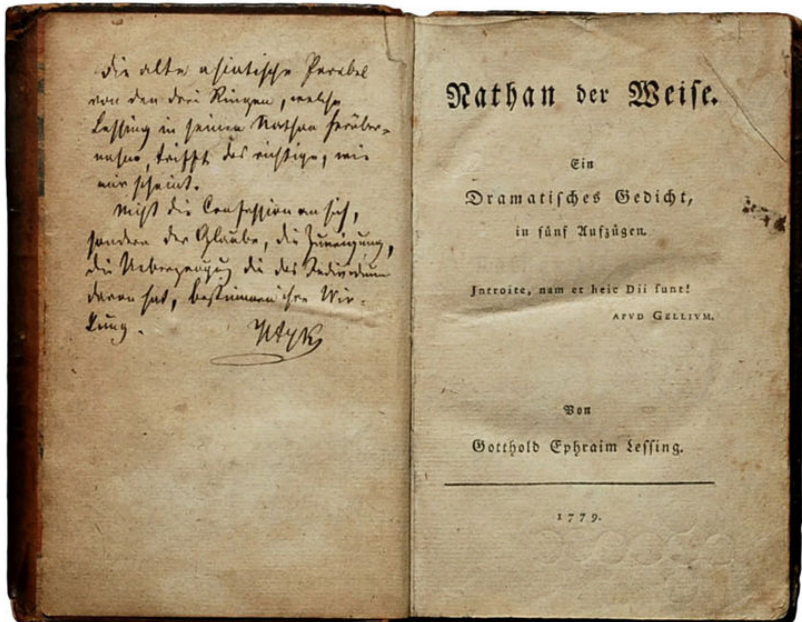 die alte asiatische Parabel
von den drei Ringen, welche
Lessing in seinen Nathan herüber-
nahm, trifft das richtige, wie
mir scheint.
Nicht die Confession an sich,
sondern der Glaube, die Zuneigung,
die Ueberzeugung die das Individuum
davon hat, bestimmen ihre Wir-
kung.
Nathan der Weiſe.
Ein
Dramatiſches Gedicht,
in fünf Aufzügen.
Introite, nam et heic Dii ſunt!
APVD GELLIVM.
Von
Gotthold Ephraim Leſſing.
1779.